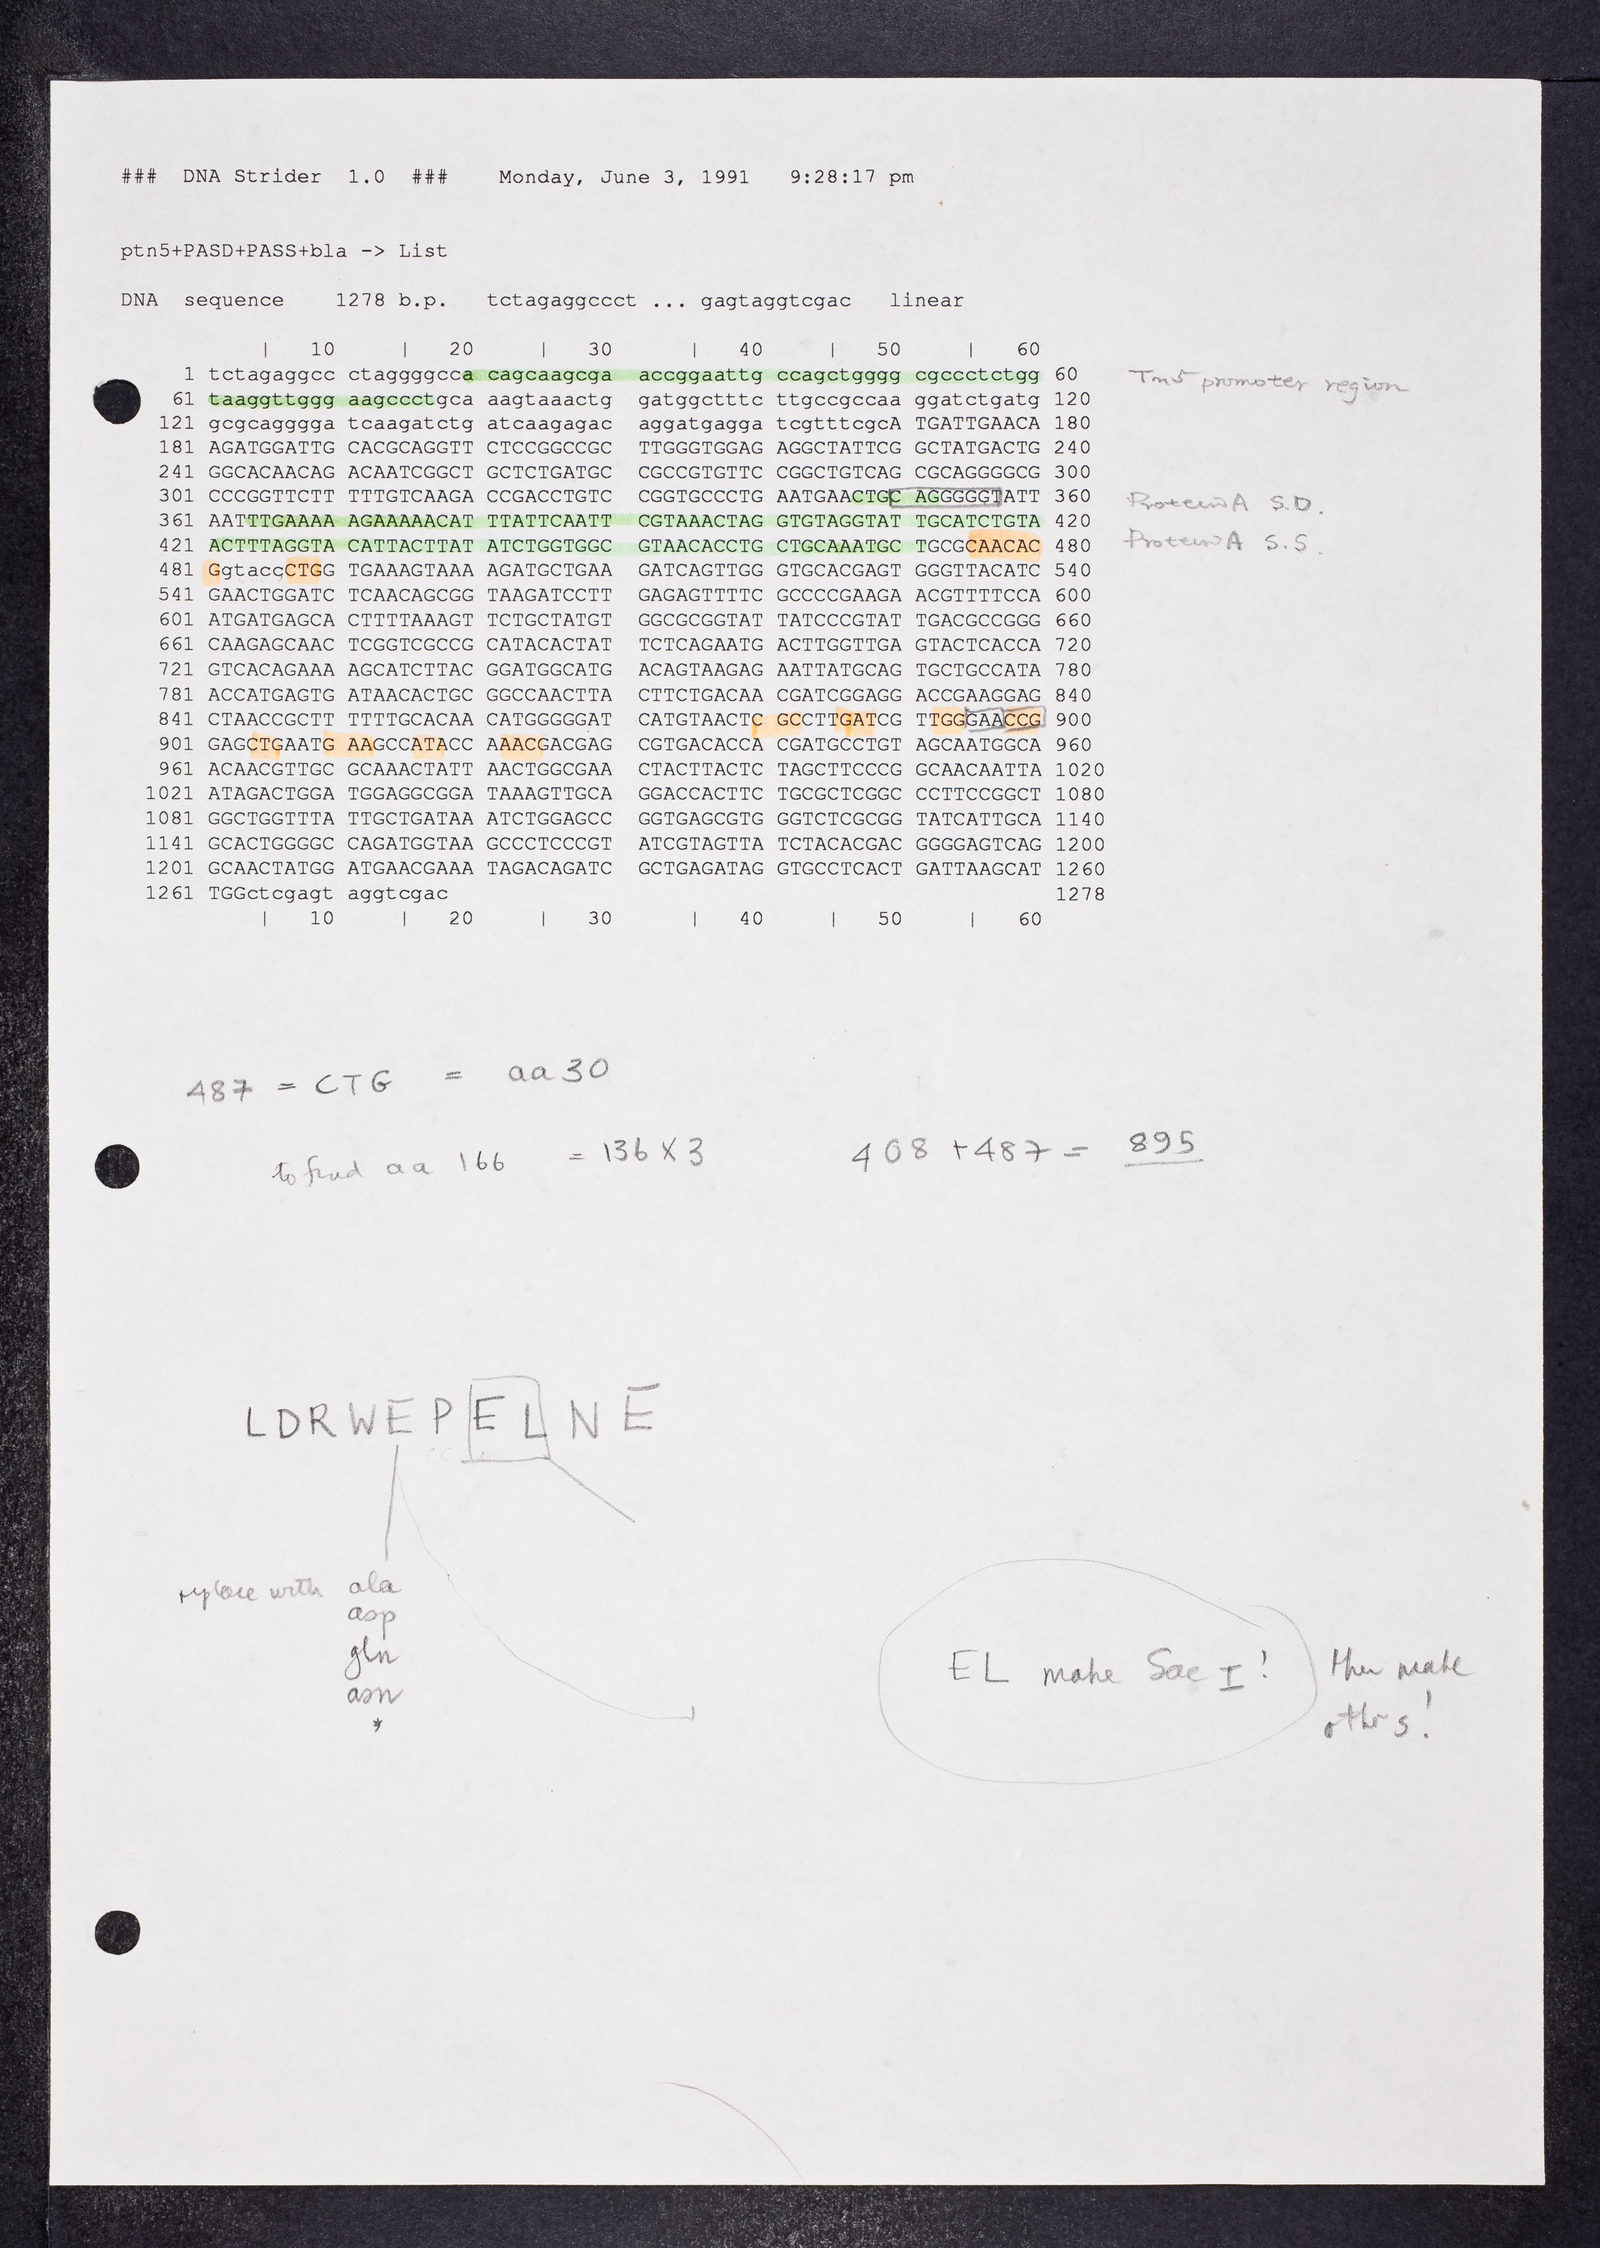 ### DNA Strider 1.0 ### Monday, June 3, 1991 9:28:17 pm
ptn5+PASD+PASS+bla -> List
DNA sequence 1278 b.p. tctagaggccct ... gagtaggtcgac linear
| 10 | 20 | 30 | 40 | 50 | 60
1 tctagaggcc ctaggggcca acagcaagcga accggaattg ccagctgggg cgccctctgg 60 Tn5 promoter region
61 taaggttggg aagccctgca aagtaaactg gatggctttc ttgccgccaa ggatctgatg 120
121 gcgcagggga tcaagatctg atcaagagac aggatgagga tcgtttcgcA TGATTGAACA 180
181 AGATGGATTG CACGCAGGTT CTCCGGCCGC TTGGGTGGAG AGGCTATTCG GCTATGACTG 240
241 GGCACAACAG ACAATCGGCT GCTCTGATGC CGCCGTGTTC CGGCTGTCAG CGCAGGGGCG 300
301 CCCGGTTCTT TTTGTCAAGA CCGACCTGTC CGGTGCCCTG AATGAACTGC AGCGGGGTATT 360 Protein A S.D.
361 AATTTGAAAA AGAAAAACAT TTATTCAATT CGTAAACTAG GTGTAGGTAT TGCATCTGTA 420
421 ACTTTAGGTA CATTACTTAT ATCTGGTGGC GTAACACCTG CTGCAAATGC TGCGCAACAC 480 Protein A S.S.
481 GgtaccCTGG TGAAAGTAAA AGATGCTGAA GATCAGTTGG GTGCACGAGT GGGTTACATC 540
541 GAACTGGATC TCAACAGCGG TAAGATCCTT GAGAGTTTTC GCCCCGAAGA ACGTTTTCCA 600
601 ATGATGAGCA CTTTTAAAGT TCTGCTATGT GGCGCGGTAT TATCCCGTAT TGACGCCGGG 660
661 CAAGAGCAAC TCGGTCGCCG CATACACTAT TCTCAGAATG ACTTGGTTGA GTACTCACCA 720
721 GTCACAGAAA AGCATCTTAC GGATGGCATG ACAGTAAGAG AATTATGCAG TGCTGCCATA 780
781 ACCATGAGTG ATAACACTGC GGCCAACTTA CTTCTGACAA CGATCGGAGG ACCGAAGGAG 840
841 CTAACCGCTT TTTTGCACAA CATGGGGGAT CATGTAACTC GCCTTGATCG TTGGGAACCG 900
901 GAGCTGAATG AAGCCATACC AAACGACGAG CGTGACACCA CGATGCCTGT AGCAATGGCA 960
961 ACAACGTTGC GCAAACTATT AACTGGCGAA CTACTTACTC TAGCTTCCCG GCAACAATTA 1020
1021 ATAGACTGGA TGGAGGCGGA TAAAGTTGCA GGACCACTTC TGCGCTCGGC CCTTCCGGCT 1080
1081 GGCTGGTTTA TTGCTGATAA ATCTGGAGCC GGTGAGCGTG GGTCTCGCGG TATCATTGCA 1140
1141 GCACTGGGGC CAGATGGTAA GCCCTCCCGT ATCGTAGTTA TCTACACGAC GGGGAGTCAG 1200
1201 GCAACTATGG ATGAACGAAA TAGACAGATC GCTGAGATAG GTGCCTCACT GATTAAGCAT 1260
1261 TGGctcgagt aggtcgac 1278
| 10 | 20 | 30 | 40 | 50 | 60
487 = CTG = aa 30
to find aa 166 = 136 X 3 408 + 487 = 895
LDRWEPELNE
replace with ala
asp
gln
asn
*
EL make Sac I! then make
others!